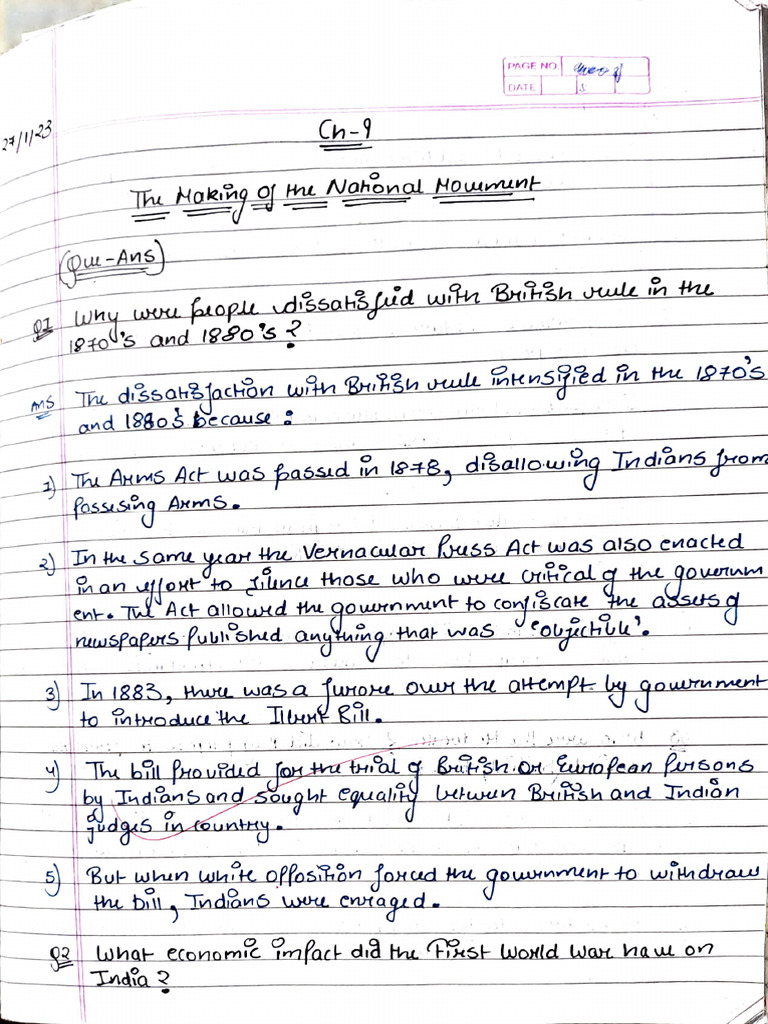 PAGE NO.
DATE
27/1/23
Ch-9
The Making of the National Movement
(Que-Ans)
Q1 Why were people dissatisfied with British rule in the
1870's and 1880's?
Ans The dissatisfaction with British rule intensified in the 1870's
and 1880's because :
1) The Arms Act was passed in 1878, disallowing Indians from
possesing Arms.
2) In the same year the Vernacular Press Act was also enacted
in an effort to silence those who were critical of the governm
ent. The Act allowed the government to confiscate the assets of
newspapers published anything that was 'objective'.
3) In 1883, there was a furore over the attempt by government
to introduce the Ilbert Bill.
4) The bill provided for the trial of British or European Persons
by Indians and sought equality between British and Indian
judges in country.
5) But when white opposition forced the government to withdraw
the bill, Indians were enraged.
Q2 What economic impact did the First World War have on
India?